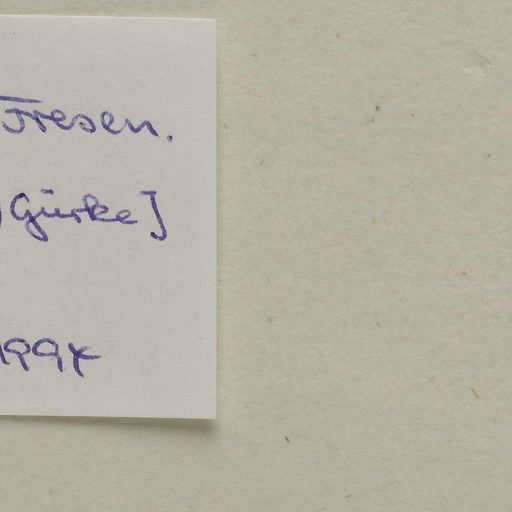 Fresen.
) Gürke]
1994